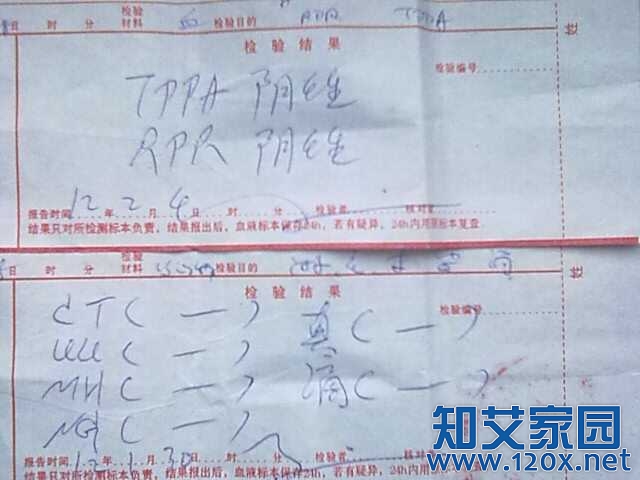 日 时 分 检验材料 血 检验目的 RPR TPPA
检验结果
检验编号
TPPA 阴性
RPR 阴性
报告时间 12 年 2 月 4 日 时 分 检验者 核对者
结果只对所检测标本负责，结果报出后，血液标本保存24h，若有疑异，24h内用原标本复查
性
日 时 分 检验材料 检验目的
检验结果
检验编号
CT (一) 真 (一)
UU (一)
MH (一) 滴 (一)
(一)
报告时间 12 年 1 月 30 日 时 分 检验者 核对
结果只对所检测标本负责，结果报出后，血液标本保存24h，若有疑异，24h内用
性
知艾家园
www.120x.net